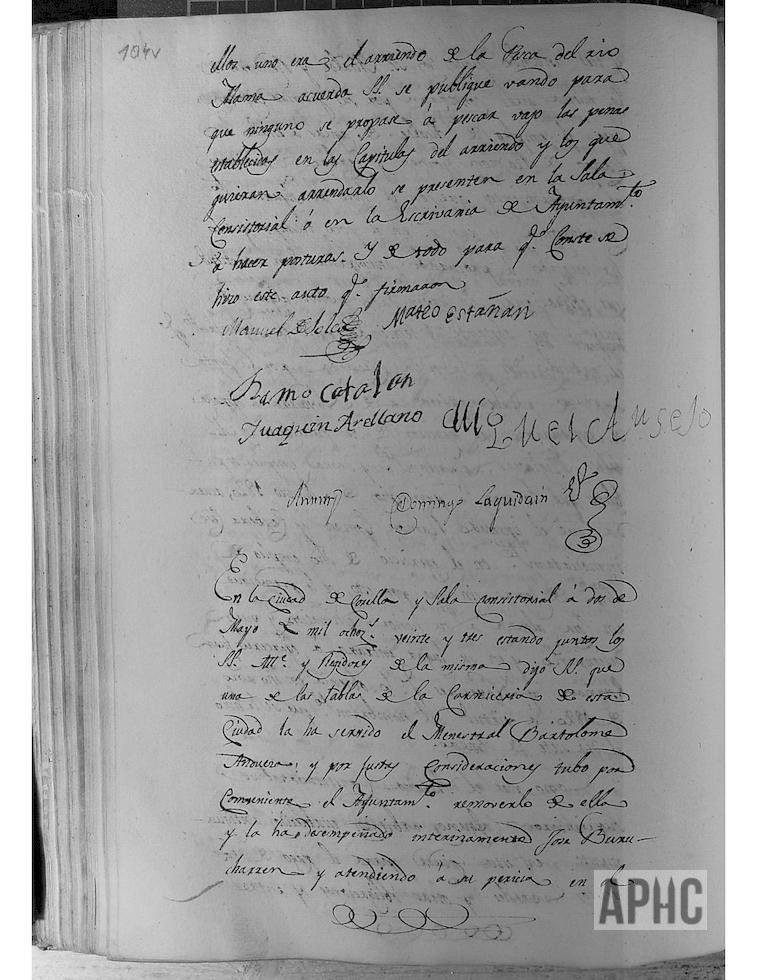 104v
ellos uno era el arriendo de la Pesca del rio
Alama acuerda S.S. se publique vando para
que ninguno se propase á pescar vajo las penas
establecidas en las Capitulas del arriendo y los que
quieran arrendarlo se presenten en la Sala
Consistorial ó en la Escrivania de Ayuntam.to
á hacer posturas. Y de todo para q.e Conste se
hizo este auto q.e firmaron
Manuel Mateo estañan
Ramo catalan
Juaquin Arellano Miguel Ausejo
Domingo Laquidain
En la Ciudad de Corella y Sala consistorial á dos de
Mayo de mil ochoz.s veinte y tres estando juntos los
SS. Al.e y Rejidores de la misma dijo S.S. que
una de las tablas de la Carniceria de esta
Ciudad la ha servido el Menestral Bartolome
y por justas Consideraciones tubo por
Combeniente el Ayuntam.to removerlo de ella
y la ha desempeñado interinamente Jose Beru-
charren y atendiendo á su pericia en el
APHC